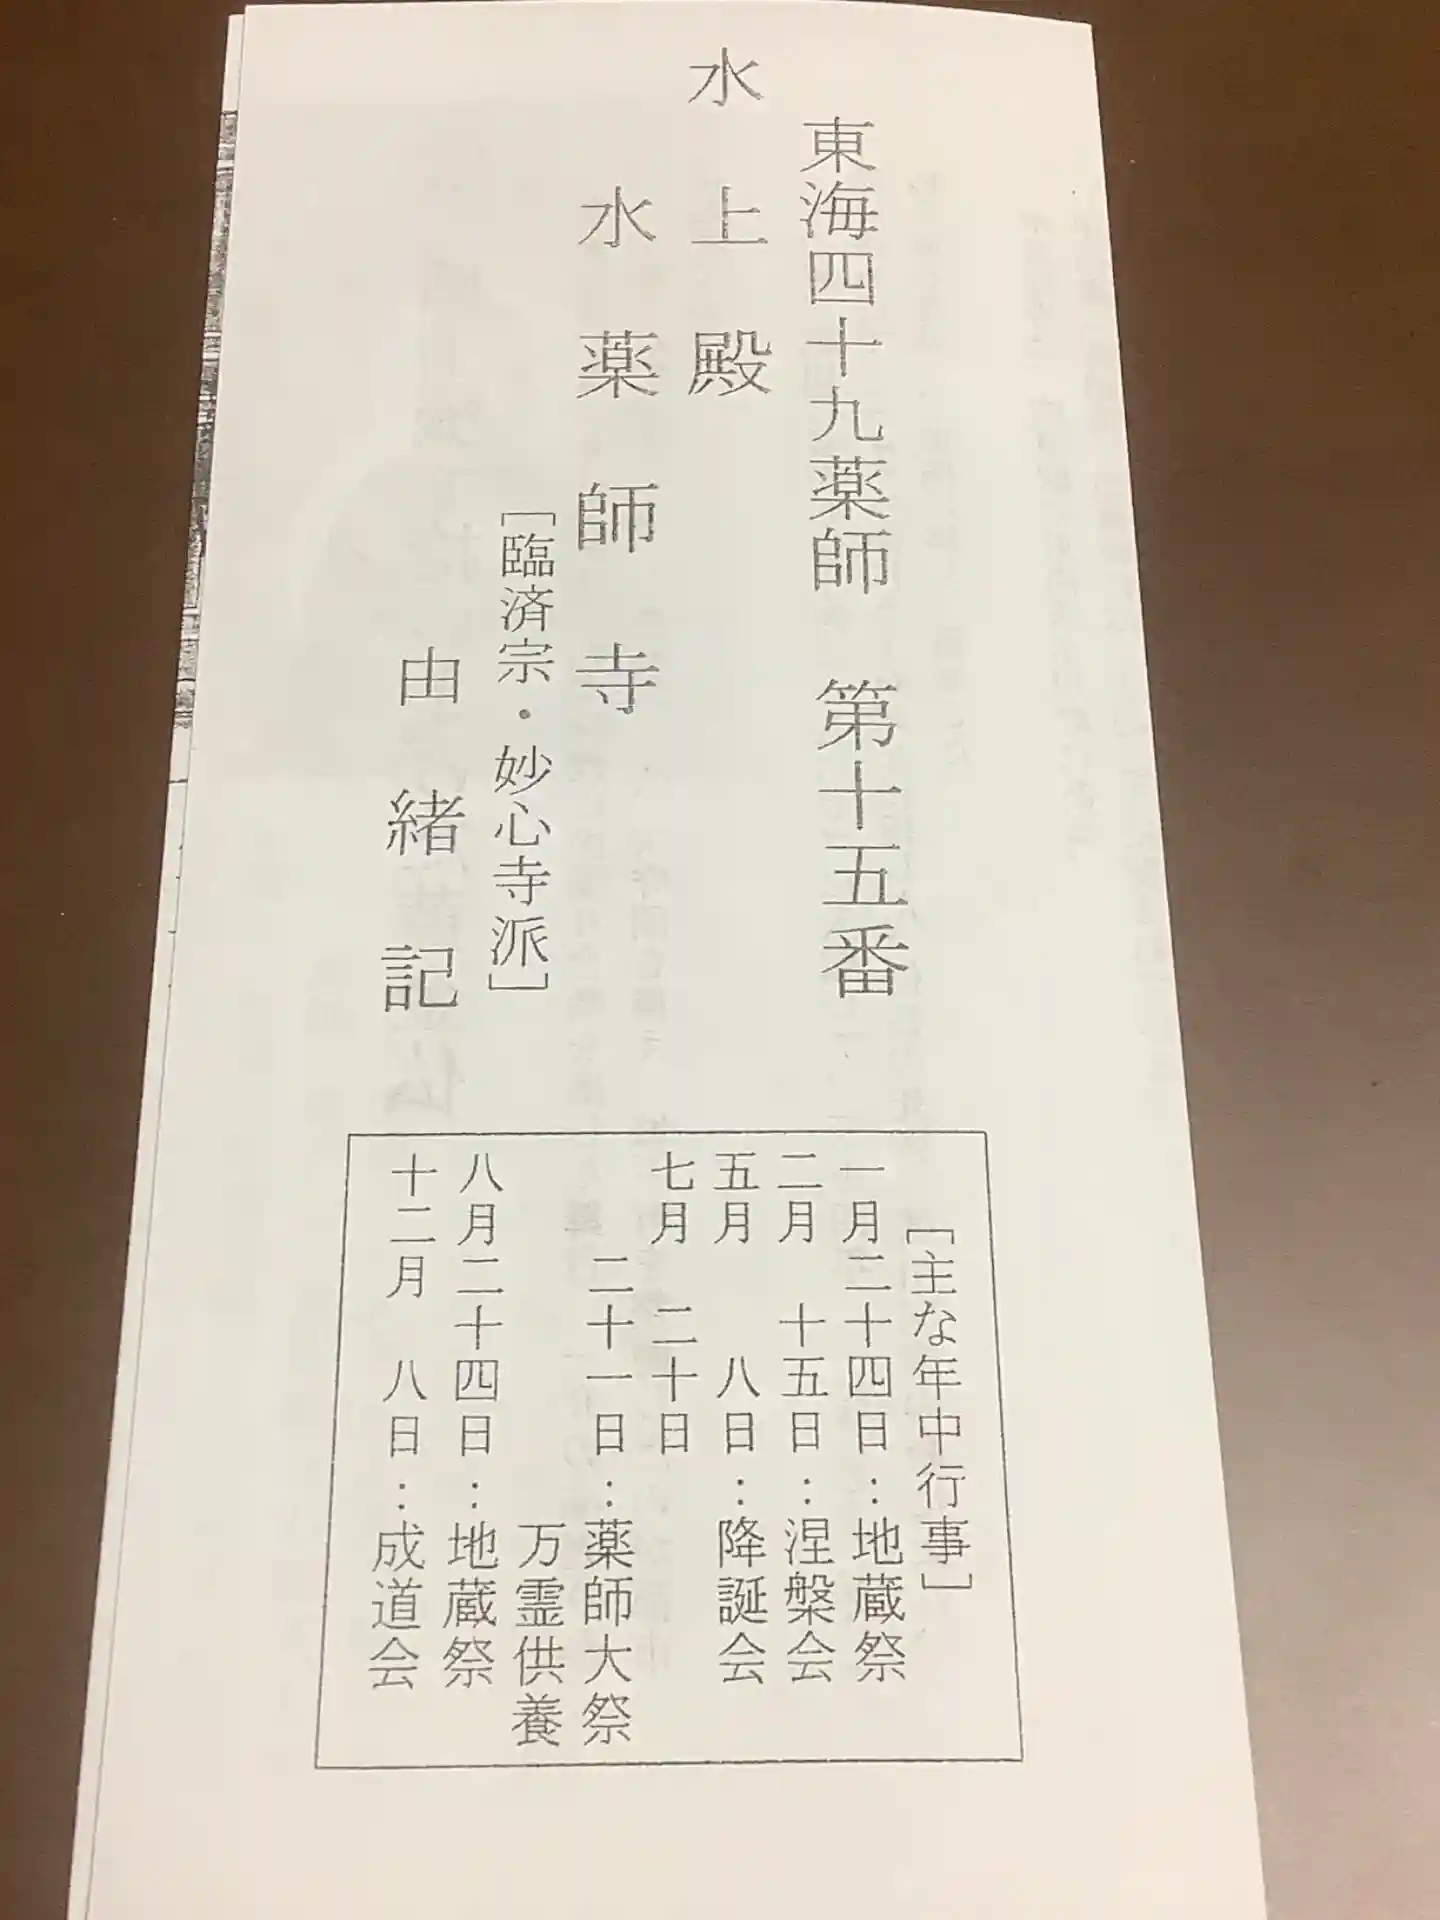 東海四十九薬師　第十五番
水上殿
水薬師寺
［臨済宗・妙心寺派］
由緒記
［主な年中行事］
一月二十四日：地蔵祭
二月　十五日：涅槃会
五月　　八日：降誕会
七月　二十日
二十一日：薬師大祭
万霊供養
八月二十四日：地蔵祭
十二月　八日：成道会